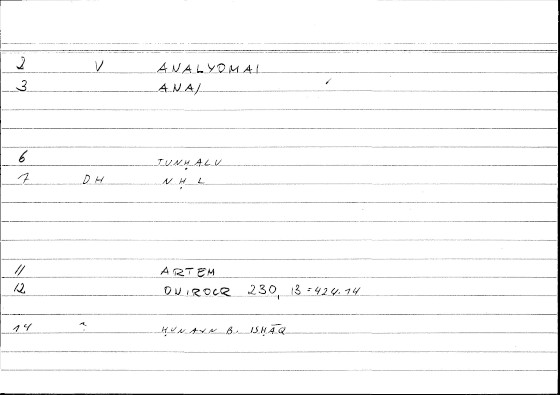 2 V ANALYOMAI
3 ANAI
6 TUNḤALU
7 DH NḤL
11 ARTEM
12 ONIROCR 230, 13 = 424.14
14 ḤUNAYN B. ISḤĀQ